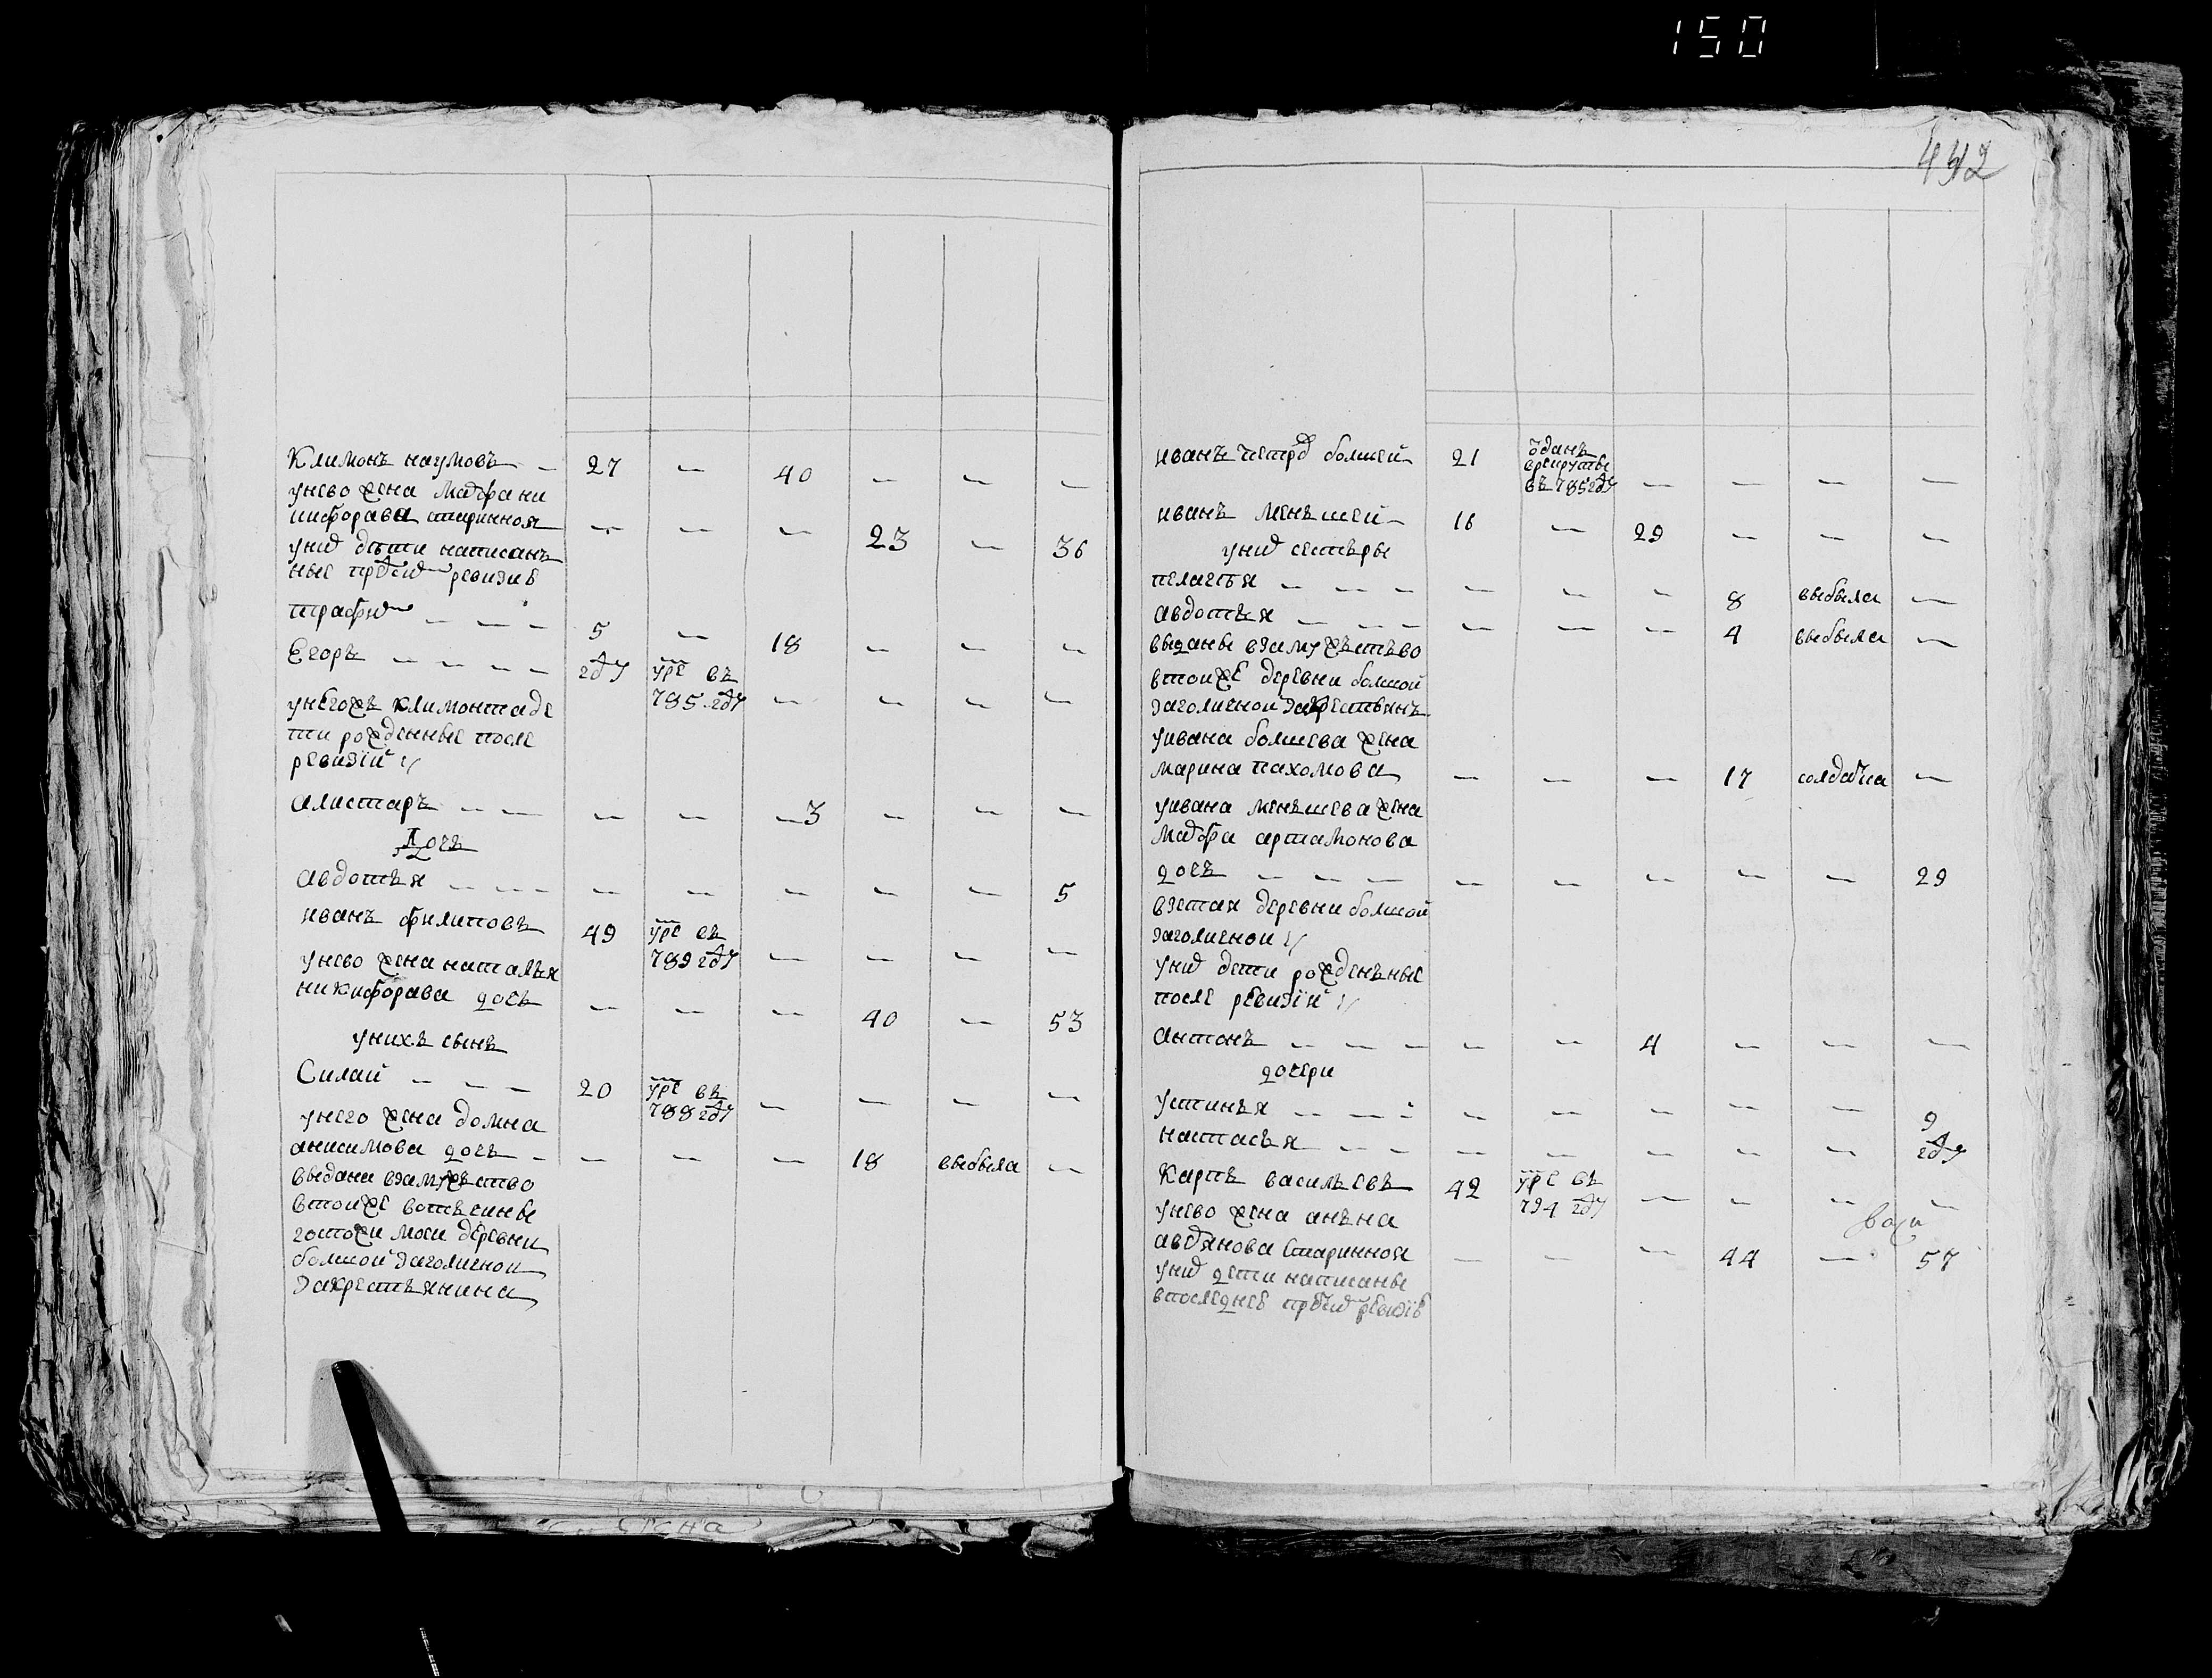 150
492
Климонъ наумовъ — 27 — 40 — — —
унево жена Матрѳна ни
кифорава старинная — — — 23 — 36
унихъ дѣти написанъ
ные пред сим ревизиѣ
трафим — — — 5 — 18 — — —
Егоръ — — — — году умре въ
785 году — — — —
унегожъ климонта де
ти рожденные после
ревизiй
алистаръ — — — — 3 — — —
Дочь
авдотья — — — — — — — — 5
иванъ филиповъ 49 умре въ
789 году — — — —
унево жена наталья
никифорава дочь — — — 40 — 53
унихъ сынъ
Силай — — — 20 умре въ
788 году — — — —
унего жена домна
анисимова дочь — — — — 18 выбыла —
выдана взамужъство
втойже вотъчинѣ
госпожи моеи деревни
болшой заголичнои
закрестьянина
иванъ болшей 21 одданъ
врекруты
въ 785 году — — — —
иванъ меньшей 16 — 29 — — —
унихъ сестъры
пелагея — — — — — — 8 выбыла —
авдотья — — — — — — 4 выбыла —
выданы взамужъство
втойже деревни болшой
заголичной закрестьянъ
уивана болшева жена
марина пахомова — — — 17 солдатка —
уивана меньшева жена
артамонова
дочь — — — — — — — — 29
взетая деревни болшой
заголичнои
унихъ дети рожденъные
после ревизiй
антонъ — — — — — 4 — — —
дочери
устинья — — — — — — — — 9
настасья — — — — — — — — году
Карпъ васильевъ 42 умре въ
794 году — — — —
унево жена анъна
авдянова старинная — — — 44 — 57
унихъ дети написаны
впоследнеѣ пред сим ревизiѣ